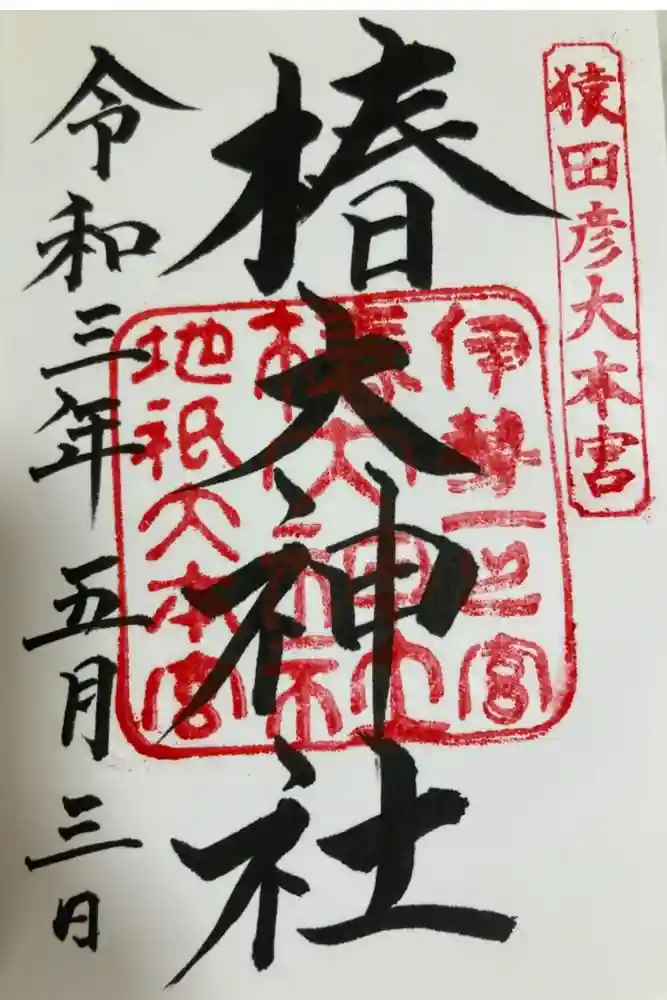 猿田彦大本宮
椿大神社
伊勢一之宮
椿大神社
地祇大本宮
令和三年五月三日